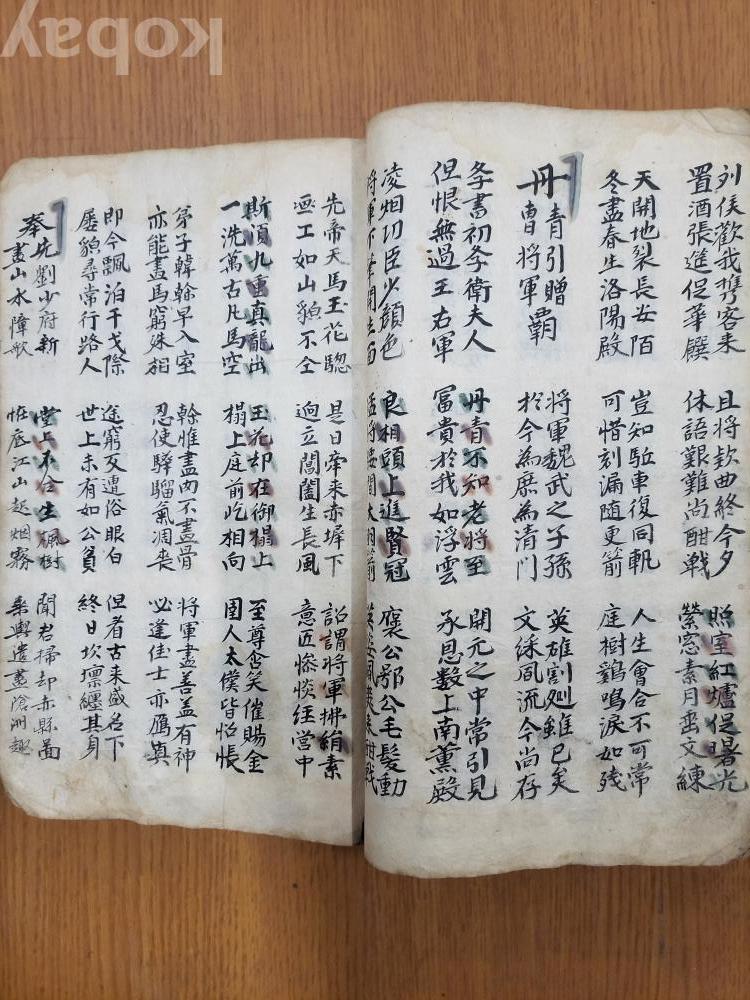 列侯歡我攜客來
置酒張進促華饌
且將款曲終今夕
休語艱難尚酣戰
照室紅爐促曙光
縈窓素月垂文練
天開地裂長安陌
冬盡春生洛陽殿
豈知駈車復同軌
可惜刻漏随更箭
人生會合不可常
庭樹鷄鳴淚如残
丹青引贈
曹將軍霸
將軍魏武之子孫
於今為庶為清門
英雄割㓨雖已矣
文綵風流今尚存
斈書初斈衛夫人
但恨無過王右軍
丹青不知老將至
富貴於我如浮雲
開元之中常引見
承恩數上南薰殿
凌烟功臣少顏色
將軍下筆開生面
良相頭上進賢冠
猛將腰間大羽箭
褒公鄂公毛髮動
英姿颯爽來酣戰
先帝天馬玉花驄
画工如山貌不仝
是日牽来赤墀下
逈立閶闔生長風
詔謂將軍拂絹素
意匠慘惔经營中
斯須九重真龍出
一洗萬古凡馬空
玉花却在御榻上
榻上庭前屹相向
至尊含笑催賜金
圉人太僕皆怊悵
弟子韓幹早入室
亦能畫馬窮殊相
幹惟畫肉不畫骨
忍使驊騮氣凋喪
將軍畫善盖有神
必逢佳士亦寫眞
即今飄泊干戈際
屢貌尋常行路人
途窮反遭俗眼白
世上未有如公貧
但看古来盛名下
終日坎壈纏其身
奉先劉少府新
畫山水幛歌
堂上不合生楓樹
怪底江山起烟霧
聞君掃却赤縣圖
乗興遣畫滄洲趣
kobay